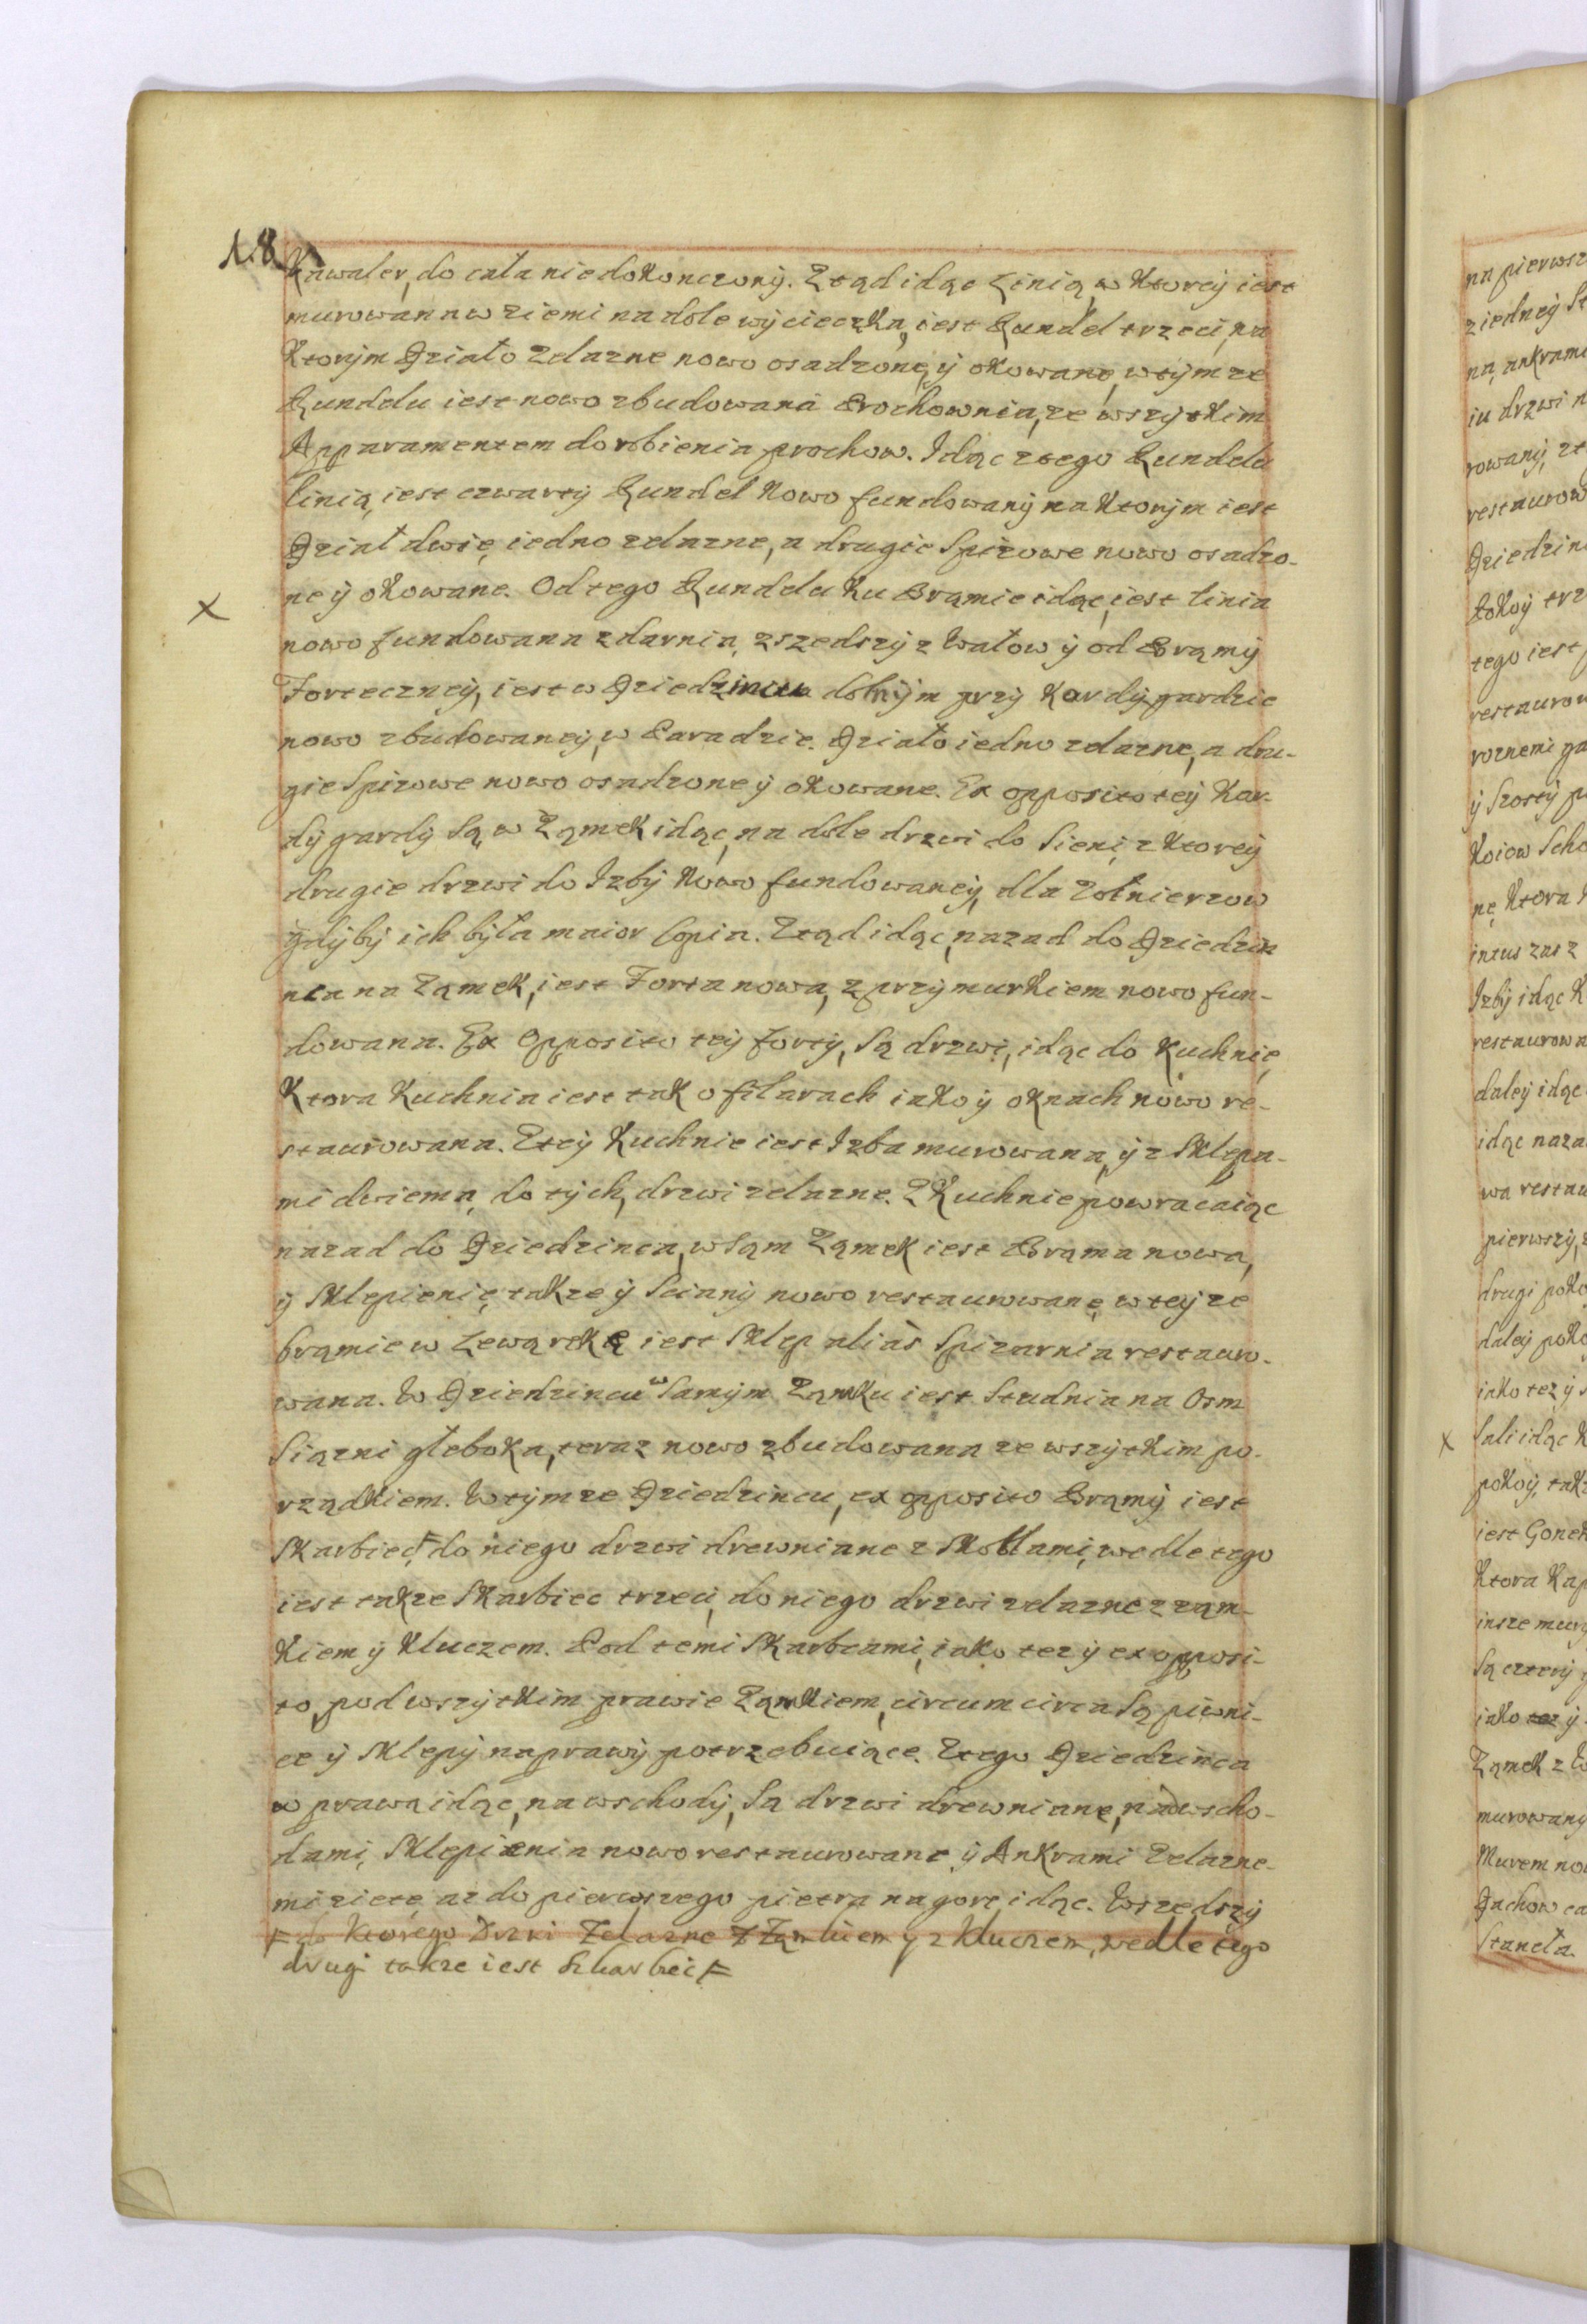 18
Kawaler, do cała niedokonczony. Ztąd idąc Linią, w Ktorey iest
murowana w ziemi na dole wycieczka, iest Rundel trzeci, na
Ktorym Działo Zelazne nowo osadzone, y okowane, w tymze
Rundelu iest nowo zbudowana Prochownia, ze wszytkim
Apparamentem do robienia prochow. Idąc z tego Rundelu
linią, iest czwarty Rundel Nowo fundowany na Ktorym iest
Dział dwie, iedno zelazne, a drugie Spizowe nowo osadzo-
ne y okowane. Od tego Rundelu Ku Bramie idąc, iest linia
nowo fundowana z darnia, zszedszy z Wałow y od Bramy
Forteczney, iest w Dziedzincu dolnym przy Kordygardzie
nowo zbudowaney, w Paradzie. Działo iedno zelazne, a dru-
gie Spizowe nowo osadzone y okowane. Ex opposito tey Kor-
dygardy Są, w Zamek idąc, na dole drzwi do Sieni, z Ktorey
drugie drzwi do Izby Nowo fundowaney, dla Zołnierzow
gdyby ich była maior Copia. Ztąd idąc, nazad do Dziedzin
nca na Zamek, iest Forta nowa, z przymurkiem nowo fun-
dowana. Ex Opposito tey forty, Są drzwi, idąc do Kuchnie,
Ktora Kuchnia iest tak o filarach iako y oknach nowo re-
staurowana. Z tey Kuchnie iest Izba murowana, y z Sklepa-
mi dwiema, do tych, drzwi zelazne. Z Kuchnie powracaiąc
nazad do Dziedzinca, w Sam Zamek iest Brama nowa,
y Sklepienie, takze y Sciany nowo restaurowane, w teyze
bramie w Lewą rękę iest Sklep alias Spizarnia restauro-
wana. W Dziedzincu w Samym Zamku iest Studnia na Osm
Siązni głeboka, teraz nowo zbudowana ze wszytkim po-
rządkiem. W tymze Dziedzincu, ex opposito Bramy iest
Skarbiec, F do niego drzwi drewniane z Skoblami, wedle tego
iest takze Skarbiec trzeci, do niego drzwi zelazne z zam-
kiem y Kluczem. Pod temi Skarbcami, iako tez y ex opposi-
to, pod wszytkim prawie Zamkiem, circum circa Są piwni-
ce y Sklepy naprawy potrzebuiące. Z tego Dziedzinca
w prawą idąc, na wschody, Są drzwi drewniane, nad wscho-
dami, Sklepienia nowo restaurowane y Ankrami Zelazne-
mi zięte, az do pierwszego piętra na gorę idąc. Wszedszy
F do Ktorego Drzwi Zelazne z Zamkiem y z Kluczem, wedle tego
drugi takze iest Skarbiec F